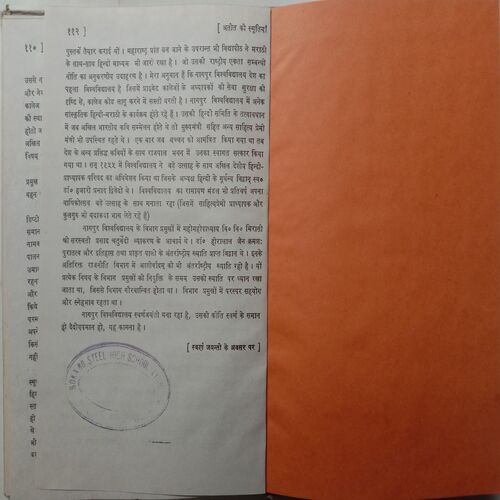 ११२ ] [ अतीत की स्मृतियाँ
पुस्तकें तैयार कराई थीं । महाराष्ट्र प्रांत बन जाने के उपरान्त भी विद्यापीठ ने मराठी
के साथ-साथ हिन्दी माध्यम भी जारी रखा है । जो उसकी राष्ट्रीय एकता सम्बन्धी
नीति का अनुकरणीय उदाहरण है । मेरा अनुमान है कि नागपुर विश्वविद्यालय देश का
पहला विश्वविद्यालय है जिसमें प्राइवेट कालेजों के अध्यापकों की सेवा सुरक्षा की
दृष्टि से, कालेज कोड लागू करने में सख्ती बरती है । नागपुर विश्वविद्यालय में अनेक
सांस्कृतिक हिन्दी-मराठी के कार्यक्रम होते रहे हैं । उसकी हिन्दी समिति के तत्वावधान
में जब अखिल भारतीय कवि सम्मेलन होते थे तो मुख्यमंत्री सहित अन्य साहित्य प्रेमी
मंत्री भी उपस्थित रहते थे । एक बार जब बच्चन को आमंत्रित किया गया था तब
देश के अन्य प्रसिद्ध कवियों के साथ राजपाल भवन में उनका स्वागत सत्कार किया
गया था । सन् १९५५ में विश्वविद्यालय ने बड़े उत्साह के साथ अखिल देशीय हिन्दी-
प्राध्यापक परिषद का अधिवेशन किया था जिसके अध्यक्ष हिन्दी के मूर्धन्य विद्वान् स्व०
डॉ० हजारी प्रसाद द्विवेदी थे । विश्वविद्यालय का रामायण मंडल भी प्रतिवर्ष अपना
वार्षिकोत्सव बड़े उत्साह के साथ मनाता रहा (जिसमें साहित्यप्रेमी प्राध्यापक और
कुलगुरु भी यदाकदा भाग लेते रहे हैं)
नागपुर विश्वविद्यालय के विभाग प्रमुखों में महामहोपाध्याय वि० वि० मिराशी
श्री सरस्वती प्रसाद चतुर्वेदी व्याकरण के आचार्य थे । डॉ० हीरालाल जैन क्रमशः
पुरातत्व और इतिहास तथा प्राकृत पाली के अंतर्राष्ट्रीय ख्याति प्राप्त विद्वान थे । इनके
अतिरिक्त राजनीति विभाग में अवतारदादू की भी अंतर्राष्ट्रीय ख्याति रही है । यों
प्रत्येक विषय के विभाग प्रमुखों की नियुक्ति के समय उसकी ख्याति पर ध्यान रखा
जाता था, जिससे विभाग गौरवान्वित होता था । विभाग प्रमुखों में परस्पर सहयोग
और स्नेहभाव रहता था ।
नागपुर विश्वविद्यालय स्वर्णजयंती मना रहा है, उसकी कीर्ति स्वर्ण के समान
ही दैदीप्यमान हो, यह कामना है ।
[ स्वर्ण जयन्ती के अवसर पर ]
STEEL HIGH SCHOOL